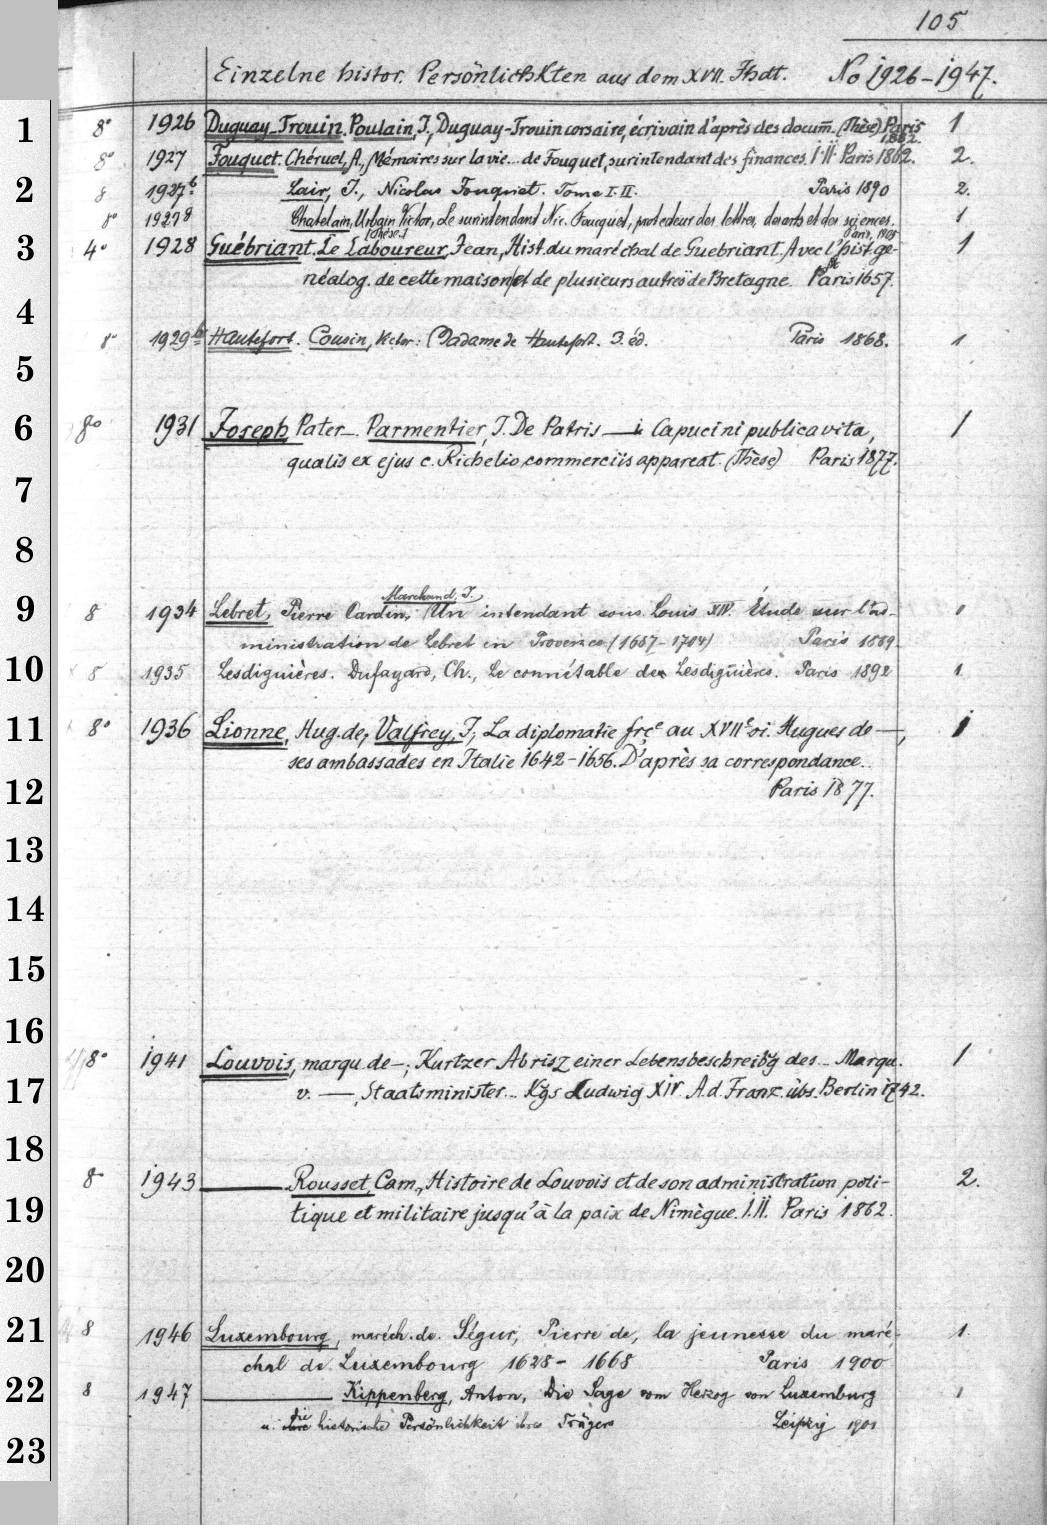 105
Einzelne histor. Persönlichkten aus dem XVII. Jhdt. No 1926-1947.
1 8° 1926 Duguay-Trouin. Poulain, J., Duguay-Trouin corsaire, écrivain d'après des docum. (Thèse) Paris 1882. 1
8° 1927 Fouquet. Chéruel, A., Mémoires sur la vie... de Fouquet, surintendant des finances. I.II. Paris 1862. 2.
2 8 1927b Lair, J., Nicolas Fouquet. Tome I.II. Paris 1890 2.
8° 1927 Chatelain, Urbain Victor, Le surintendant Nic. Foucquet, protecteur des lettres, des arts et des sciences. 1
(Thèse.) Paris, 1905
3 4° 1928 Guébriant. Le Laboureur, Jean, Hist. du maréchal de Guebriant. Avec l'hist. gé-
néalog. de cette maison et de plusieurs autres de Bretagne. Paris 1657. 1
4
8° 1929b Hautefort. Cousin, Victor: Madame de Hautefort. 3. éd. Paris 1868. 1
5
6 8° 1931 Joseph, Pater. Parmentier, J. De Patris — i Capucini publica vita, 1
qualis ex ejus c. Richelio commerciis appareat. (Thèse) Paris 1877.
7
8
Marchand, J.
9 8 1934 Lebret, Pierre Cardin, Un intendant sous Louis XIV. Étude sur l'ad- 1
ministration de Lebret en Provence (1687-1704) Paris 1889.
10 8 1935 Lesdiguières. Dufayard, Ch., Le connétable de Lesdiguières. Paris 1892 1
11 8° 1936 Lionne, Hug. de, Valfrey, J., La diplomatie frçe au XVIIe si. Hugues de —, 1
ses ambassades en Italie 1642-1656. D'après sa correspondance.
12 Paris 1877.
13
14
15
16
8° 1941 Louvois, marqu. de —; Kurtzer Abrisz einer Lebensbeschreibg des... Marqu. 1
17 v. —, Staatsminister... Kgs Ludwig XIV. A. d. Franz. übs. Berlin 1742.
18
8° 1943 — Rousset, Cam., Histoire de Louvois et de son administration poli- 2.
19 tique et militaire jusqu'à la paix de Nimègue. I.II. Paris 1862.
20
21 8 1946 Luxembourg, maréch. de. Ségur, Pierre de, la jeunesse du maré- 1.
chal de Luxembourg 1628-1668 Paris 1900
22 8 1947 — Kippenberg, Anton, Die Sage vom Herzog von Luxemburg 1
u. die historische Persönlichkeit ihres Trägers Leipzig 1901
23